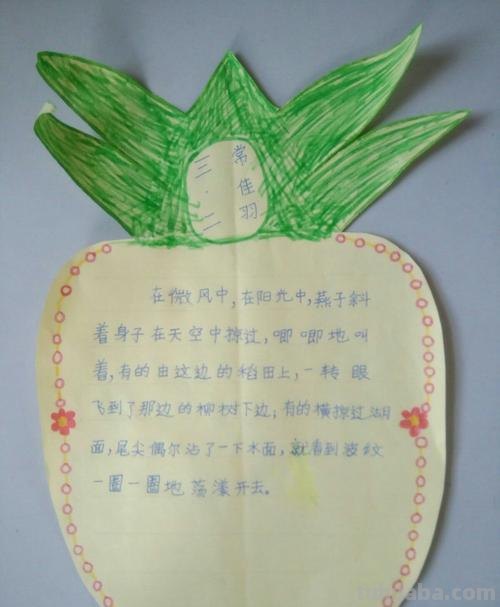 常佳羽
三.二
在微风中,在阳光中,燕子斜
着身子在天空中掠过,唧唧地叫
着,有的由这边的稻田上,一转眼
飞到了那边的柳树下边;有的横掠过湖
面,尾尖偶尔沾了一下水面,就看到波纹
一圈一圈地荡漾开去。